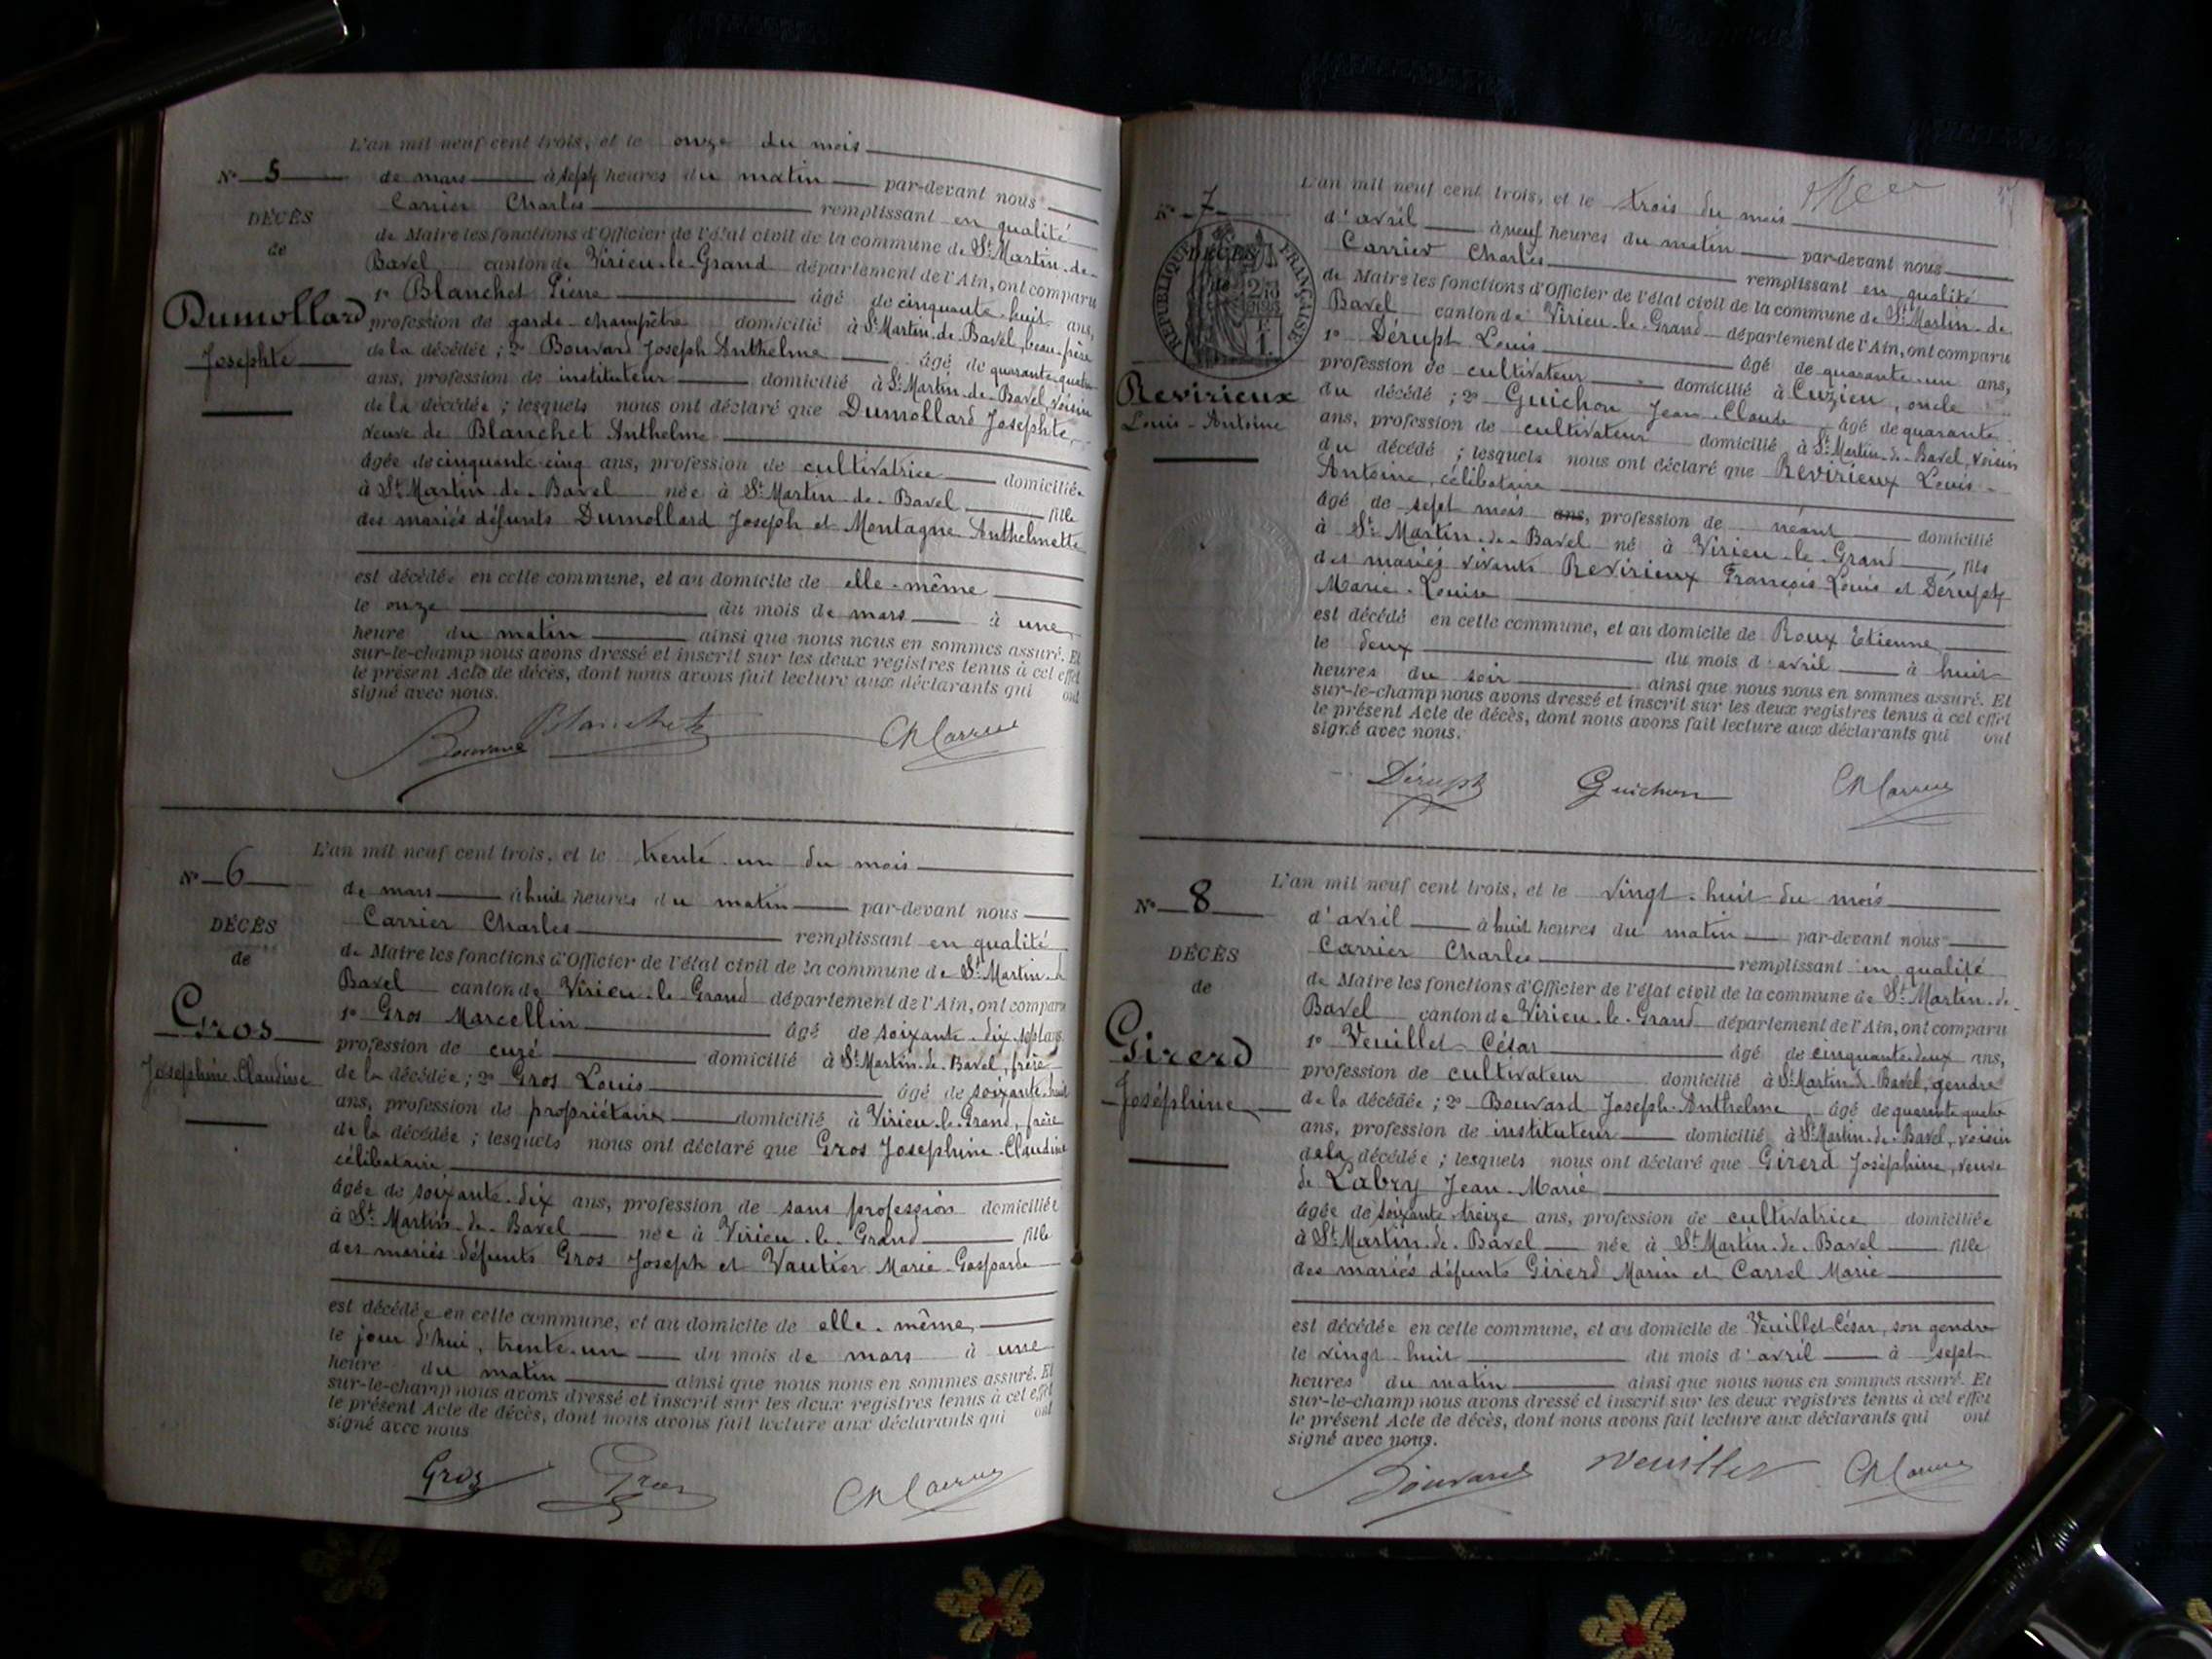 L'an mil neuf cent trois, et le onze du mois
N° 5
de mars à sept heures du matin par-devant nous
Carrier Charles remplissant en qualité
DÉCÈS
de Maire les fonctions d'Officier de l'état civil de la commune de St Martin-de-
de
Bavel canton de Virieu-le-Grand département de l'Ain, ont comparu
1° Blanchet Pierre âgé de cinquante-huit ans,
Dumollard
profession de garde-champêtre domicilié à St Martin-de-Bavel, beau-frère
Josephte
de la décédée ; 2° Bouvard Joseph Anthelme âgé de quarante-quatre
ans, profession de instituteur domicilié à St Martin-de-Bavel, voisin
de la décédée ; lesquels nous ont déclaré que Dumollard Josephte,
veuve de Blanchet Anthelme
âgée de cinquante-cinq ans, profession de cultivatrice domiciliée
à St Martin-de-Bavel née à St Martin-de-Bavel fille
des mariés défunts Dumollard Joseph et Montagne Anthelmette
est décédée en cette commune, et au domicile de elle-même
le onze du mois de mars à une
heure du matin ainsi que nous nous en sommes assuré. Et
sur-le-champ nous avons dressé et inscrit sur les deux registres tenus à cet effet
le présent Acte de décès, dont nous avons fait lecture aux déclarants qui ont
signé avec nous.
Bouvard Blanchet Ch Carrier
L'an mil neuf cent trois, et le trente-un du mois
N° 6
de mars à huit heures du matin par-devant nous
Carrier Charles remplissant en qualité
DÉCÈS
de Maire les fonctions d'Officier de l'état civil de la commune de St Martin-de
de
Bavel canton de Virieu-le-Grand département de l'Ain, ont comparu
1° Gros Marcellin âgé de soixante-dix-sept ans,
Gros
profession de curé domicilié à St Martin-de-Bavel, frère
Joséphine-Claudine
de la décédée ; 2° Gros Louis âgé de soixante-huit
ans, profession de propriétaire domicilié à Virieu-le-Grand, frère
de la décédée ; lesquels nous ont déclaré que Gros Josephine-Claudine
célibataire
âgée de soixante-dix ans, profession de sans profession domiciliée
à St Martin-de-Bavel née à Virieu-le-Grand fille
des mariés défunts Gros Joseph et Vautier Marie-Gasparde
est décédée en cette commune, et au domicile de elle-même,
le jour d'hui, trente-un du mois de mars à une
heure du matin ainsi que nous nous en sommes assuré. Et
sur-le-champ nous avons dressé et inscrit sur les deux registres tenus à cet effet
le présent Acte de décès, dont nous avons fait lecture aux déclarants qui ont
signé avec nous
Gros Gros Ch Carrier
L'an mil neuf cent trois, et le trois du mois
N° 7
d'avril à neuf heures du matin par-devant nous
DÉCÈS
RÉPUBLIQUE FRANÇAISE
Carrier Charles remplissant en qualité
de Maire les fonctions d'Officier de l'état civil de la commune de St Martin-de
Bavel canton de Virieu-le-Grand département de l'Ain, ont comparu
1° Dérupt Louis âgé de quarante-un ans,
profession de cultivateur domicilié à Cuzieu, oncle
Revirieux
du décédé ; 2° Guichon Jean-Claude âgé de quarante
Louis-Antoine
ans, profession de cultivateur domicilié à St Martin-de-Bavel, voisin
du décédé ; lesquels nous ont déclaré que Revirieux Louis-
Antoine, célibataire
âgé de sept mois ans, profession de néant domicilié
à St Martin-de-Bavel né à Virieu-le-Grand, fils
des mariés vivants Revirieux François Louis et Dérupt
Marie-Louise
est décédé en cette commune, et au domicile de Roux Etienne
le deux du mois d'avril à huit
heures du soir ainsi que nous nous en sommes assuré. Et
sur-le-champ nous avons dressé et inscrit sur les deux registres tenus à cet effet
le présent Acte de décès, dont nous avons fait lecture aux déclarants qui ont
signé avec nous.
Dérupt Guichon Ch Carrier
L'an mil neuf cent trois, et le vingt-huit du mois
N° 8
d'avril à huit heures du matin par-devant nous
Carrier Charles remplissant en qualité
DÉCÈS
de Maire les fonctions d'Officier de l'état civil de la commune de St Martin-de-
de
Bavel canton de Virieu-le-Grand département de l'Ain, ont comparu
1° Veuillet César âgé de cinquante-deux ans,
Girerd
profession de cultivateur domicilié à St Martin-de-Bavel, gendre
Joséphine
de la décédée ; 2° Bouvard Joseph-Anthelme, âgé de quarante-quatre
ans, profession de instituteur domicilié à St Martin-de-Bavel, voisin
de la décédée ; lesquels nous ont déclaré que Girerd Joséphine, veuve
de Labry Jean-Marie
âgée de soixante-treize ans, profession de cultivatrice domiciliée
à St Martin-de-Bavel née à St Martin-de-Bavel fille
des mariés défunts Girerd Marin et Carrel Marie
est décédée en cette commune, et au domicile de Veuillet César, son gendre
le vingt-huit du mois d'avril à sept
heures du matin ainsi que nous nous en sommes assuré. Et
sur-le-champ nous avons dressé et inscrit sur les deux registres tenus à cet effet
le présent Acte de décès, dont nous avons fait lecture aux déclarants qui ont
signé avec nous.
Bouvard Veuillet Ch Carrier